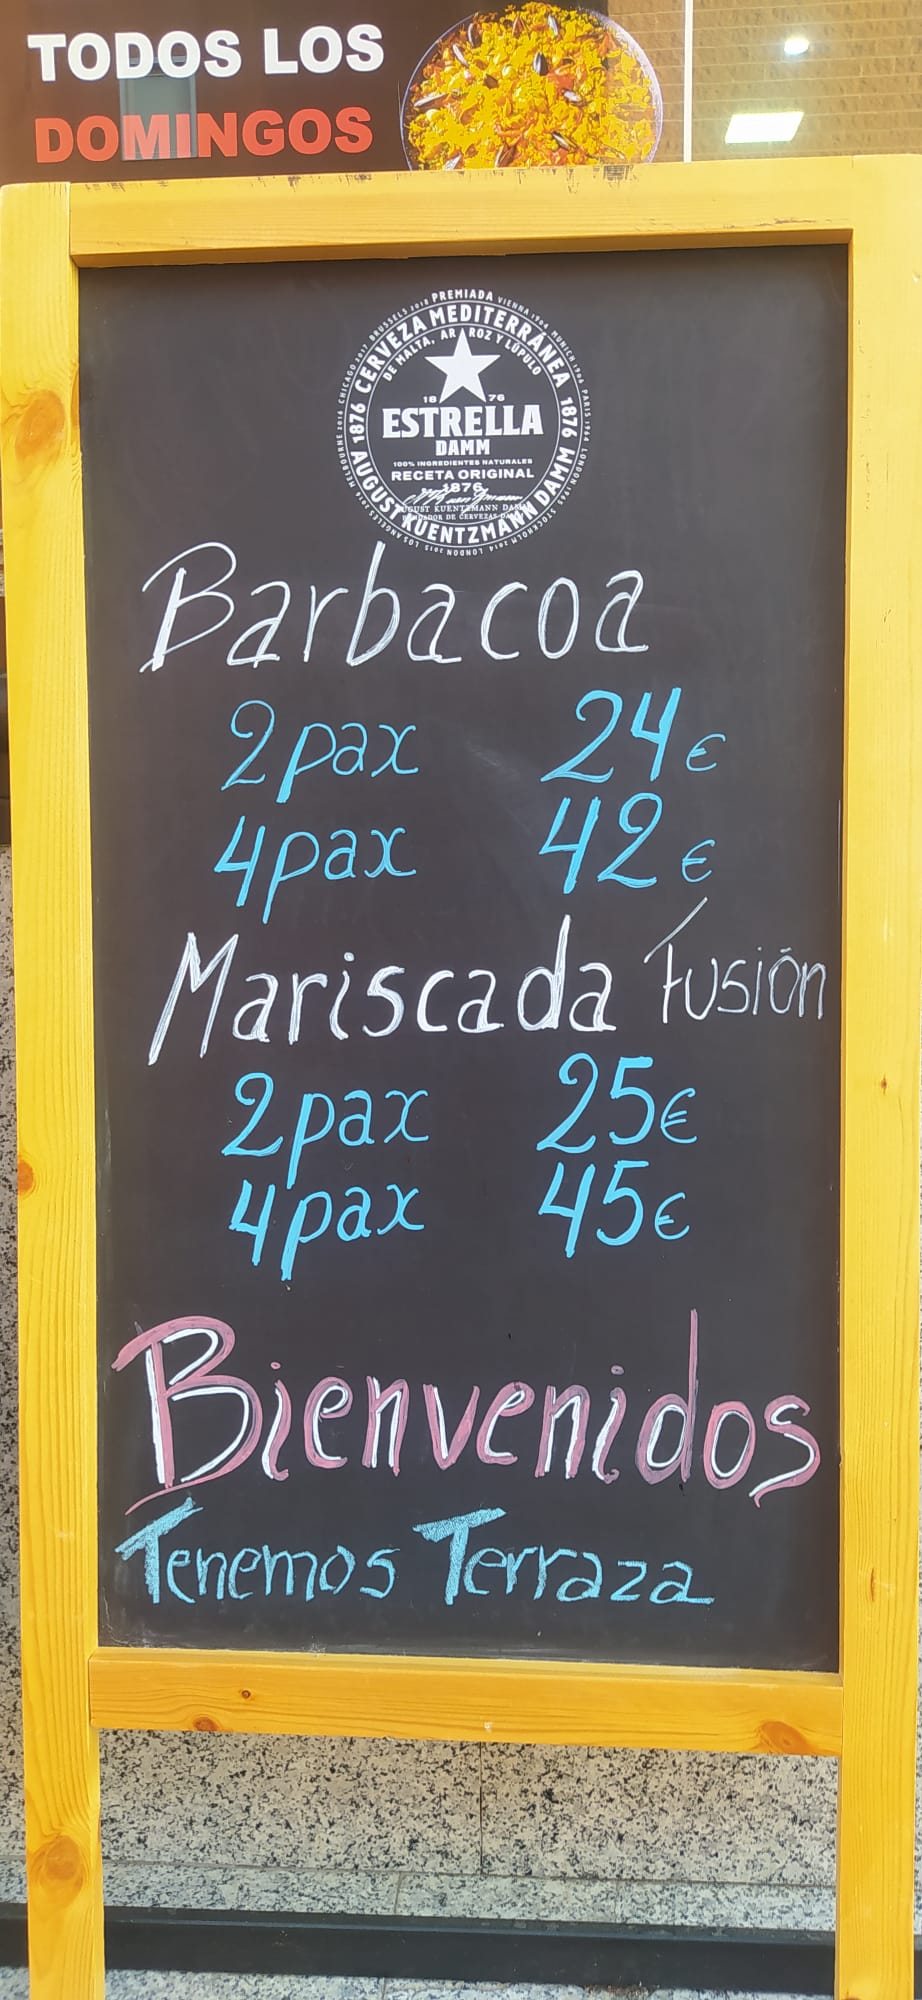 TODOS LOS
DOMINGOS
PREMIADA VIENNA 1904 MUNICH 1906 PARIS 1964 LONDON 1965 STOCKHOLM 2014 LONDON 2015 LOS ANGELES 2016 MELBOURNE 2016 CHICAGO 2017 BRUSSELS 2018
CERVEZA MEDITERRÁNEA
DE MALTA, ARROZ Y LÚPULO
1876 AUGUST KUENTZMANN DAMM 1876
18 76
ESTRELLA
DAMM
100% INGREDIENTES NATURALES
RECETA ORIGINAL
1876
AUGUST KUENTZMANN DAMM
Barbacoa
2pax 24€
4pax 42€
Mariscada Fusión
2pax 25€
4pax 45€
Bienvenidos
Tenemos Terraza